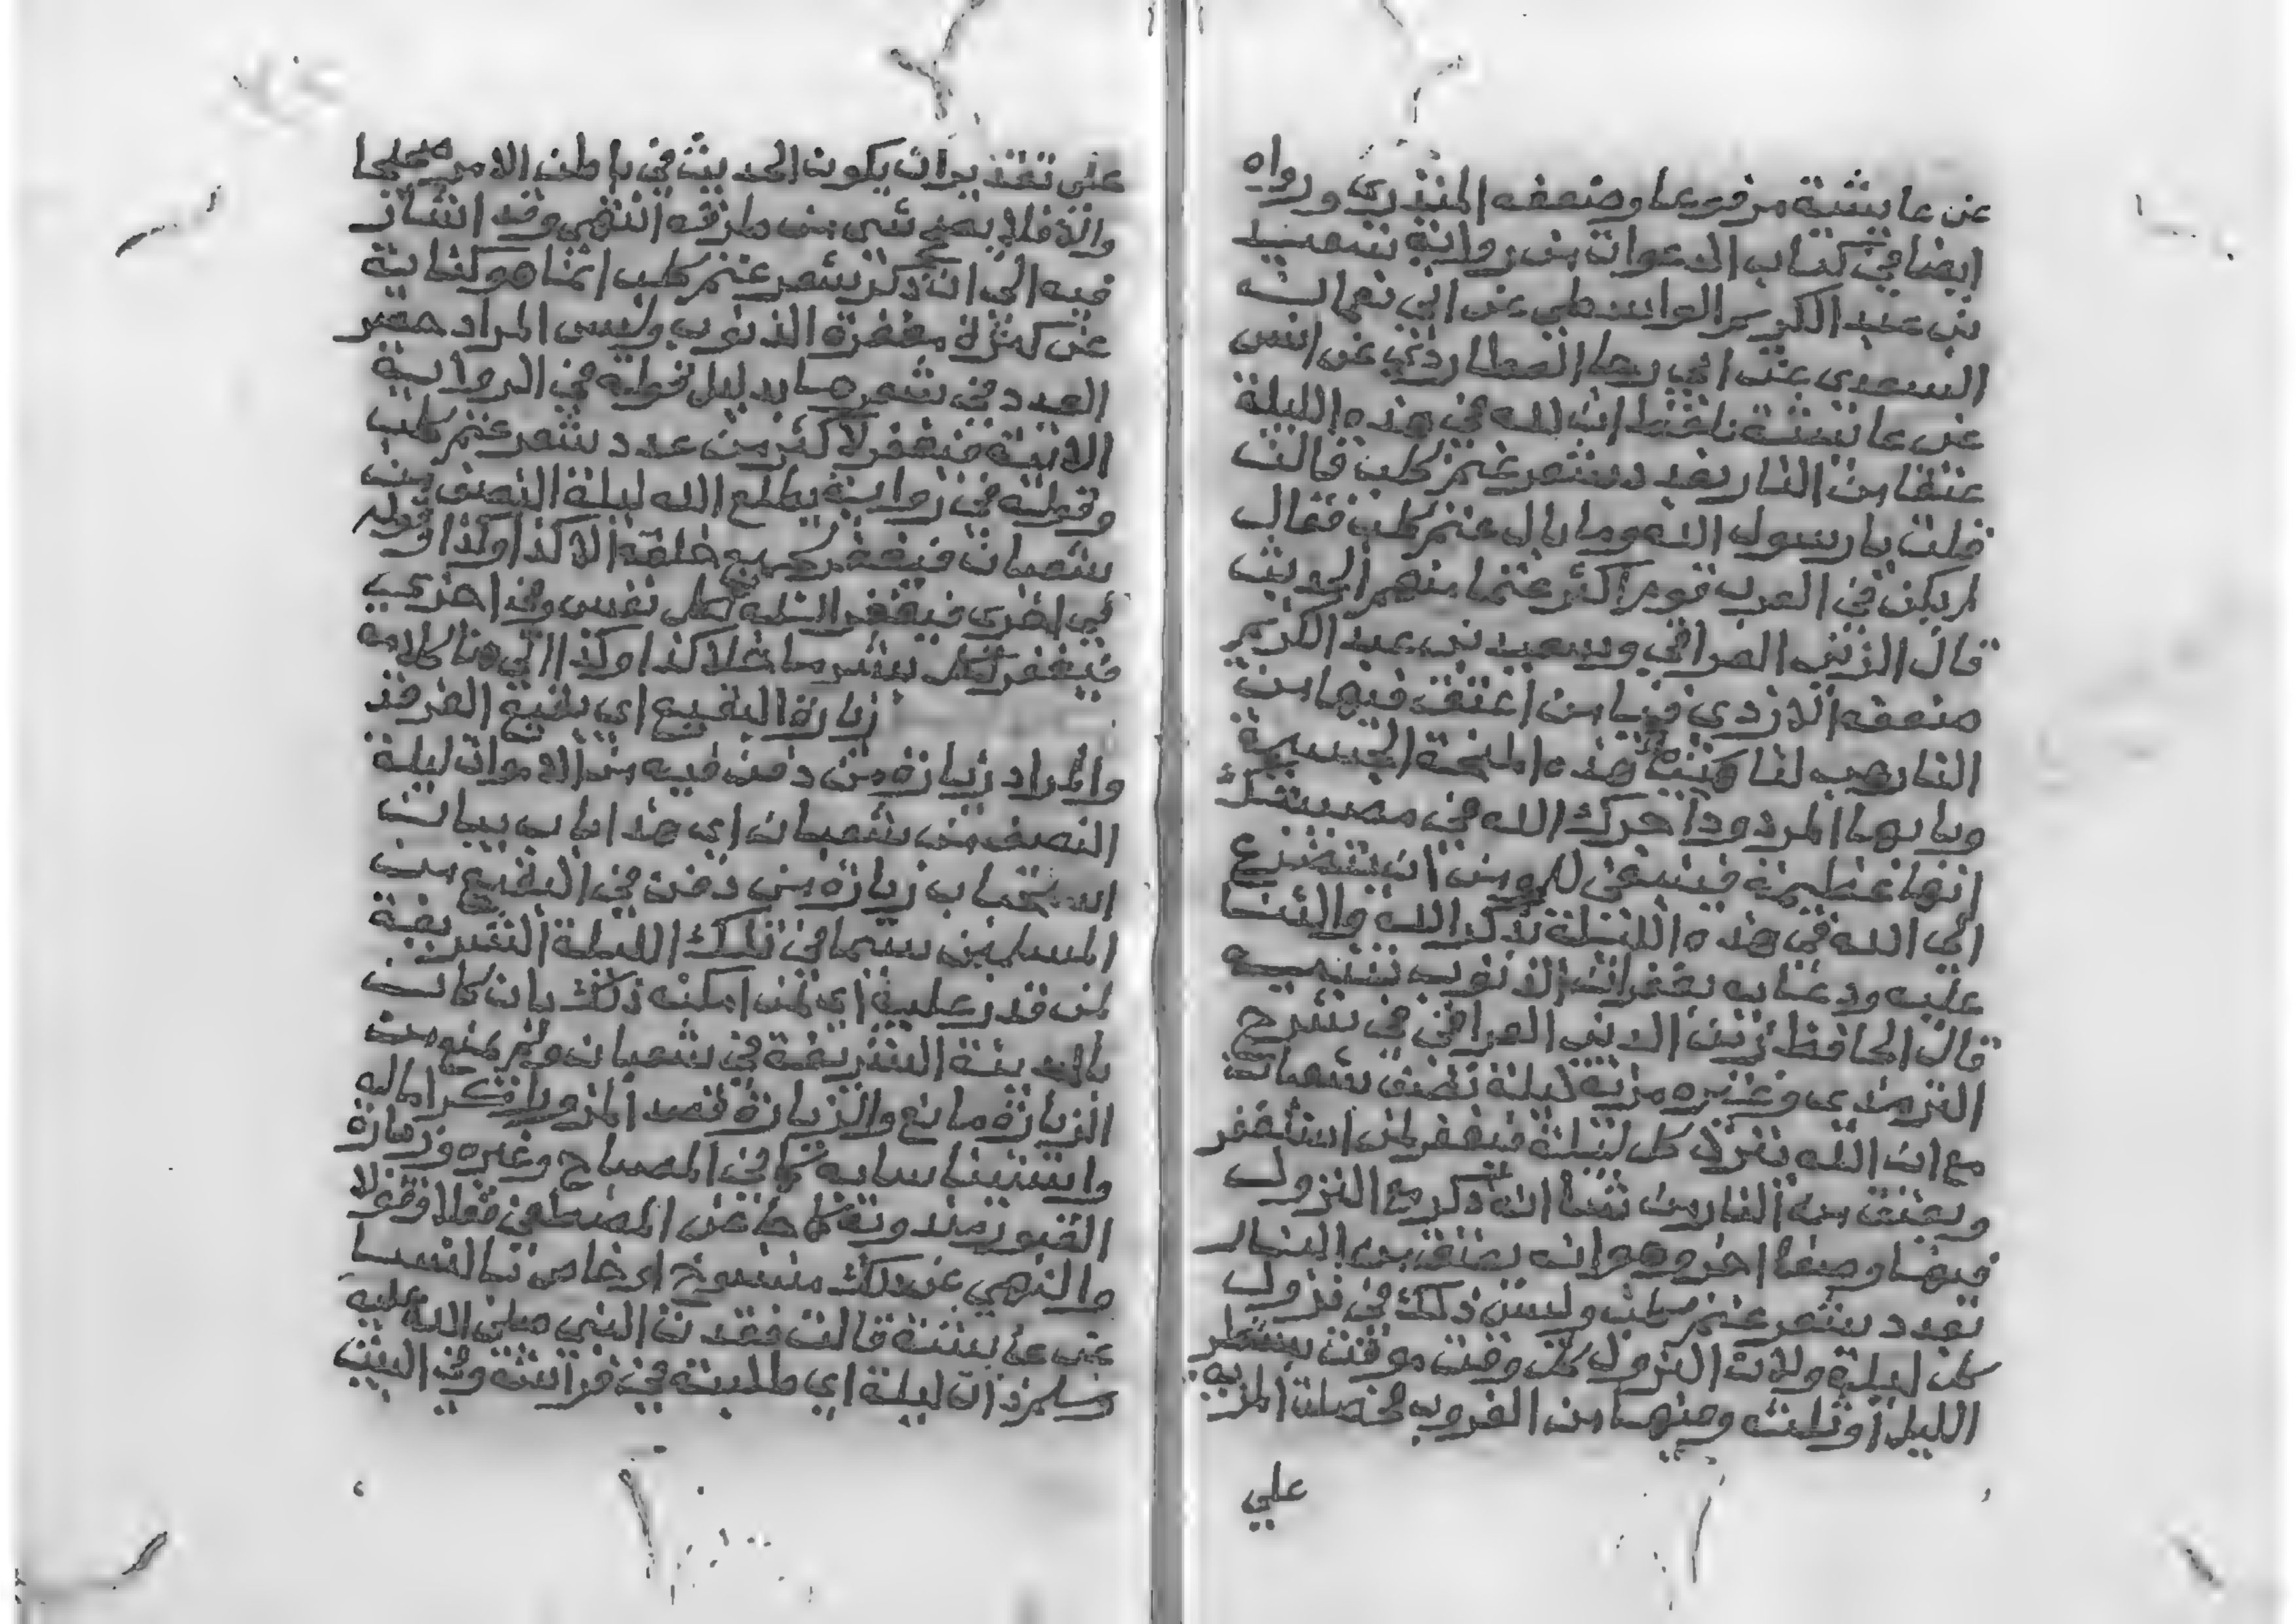 عن عايشة مرفوعا وضعفه المنذري ورواه
ايضا في كتاب الدعوات من رواية سعيد
بن عبد الكريم الواسطي عن ابي نعمان
السعدي عن ابي رجا العطاردي عن انس
عن عايشة بلفظ ان لله في هذه الليلة
عتقا من النار بعدد شعر غنم كلب قالت
قلت يا رسول الله وما بال غنم كلب فقال
لم يكن في العرب قوم اكثر غنما منهم الحديث
قال الزين العراقي وسعيد بن عبد الكريم
ضعفه الازدي فيا من اعتق فيها من
النار هب لنا هذه المنحة الجسيمة
ويا ايها المردود اجرك الله في مصيبتك
انها عظيمة فينبغي للمومن ان يتضرع
الى الله في هذه الليلة بذكر الله والثنا
عليه ودعايه بغفران الذنوب تنبيه
قال الحافظ زين الدين العراقي في شرح
الترمذي وغيره مزية ليلة نصف شعبان
مع ان الله ينزل كل ليلة فيغفر لمن استغفر
ويعتق من النار من شا انه ذكر مع النزول
فيها وصفا اخر وهو انه يعتق من النار
بعدد شعر غنم كلب وليس ذلك في نزول
كل ليلة ولان النزول كل وقت موقت بشطر
الليل او ثلثه ومنها من الغروب فحصلت المزية
علي
على تقدير ان يكون الحديث في باطن الامر صحيحا
والا فلا يصح شي من طرقه انتهى وقد اشار
فيه الى ان ذكر شعر غنم كلب انما هو كناية
عن كثرة مغفرة الذنوب وليس المراد حصر
العدد في شعرها بدليل قوله في الرواية
الاتية فيغفر لاكثر من عدد شعر غنم كلب
وقوله في رواية يطلع الله ليلة النصف من
شعبان فيغفر لجميع خلقه الا كذا وكذا وقوله
في اخرى فيغفر الله لكل نفس وفي اخرى
فيغفر لكل بشر ما خلا كذا وكذا الى هنا كلامه
زيارة البقيع اي بقيع الغرقد
والمراد زيارة من دفن فيه من الاموات ليلة
النصف من شعبان اي هذا باب بيان
استحباب زيارة من دفن في البقيع من
المسلمين سيما في تلك الليلة الشريفة
لمن قدر عليه اي لمن امكنه ذلك بان كان
بالمدينة الشريفة في شعبان ولم يمنع من
الزيارة مانع والزيارة قصد المزور اكراما له
واستيناسا به كما في المصباح وغيره وزيارة
القبور مندوبة كما جا عن المصطفى فعلا وقولا
والنهي عن ذلك منسوخ او خاص بالنسا
عن عايشة قالت فقدت النبي صلى الله عليه
وسلم ذات ليلة اي طلبته في فراشه وفي البيت